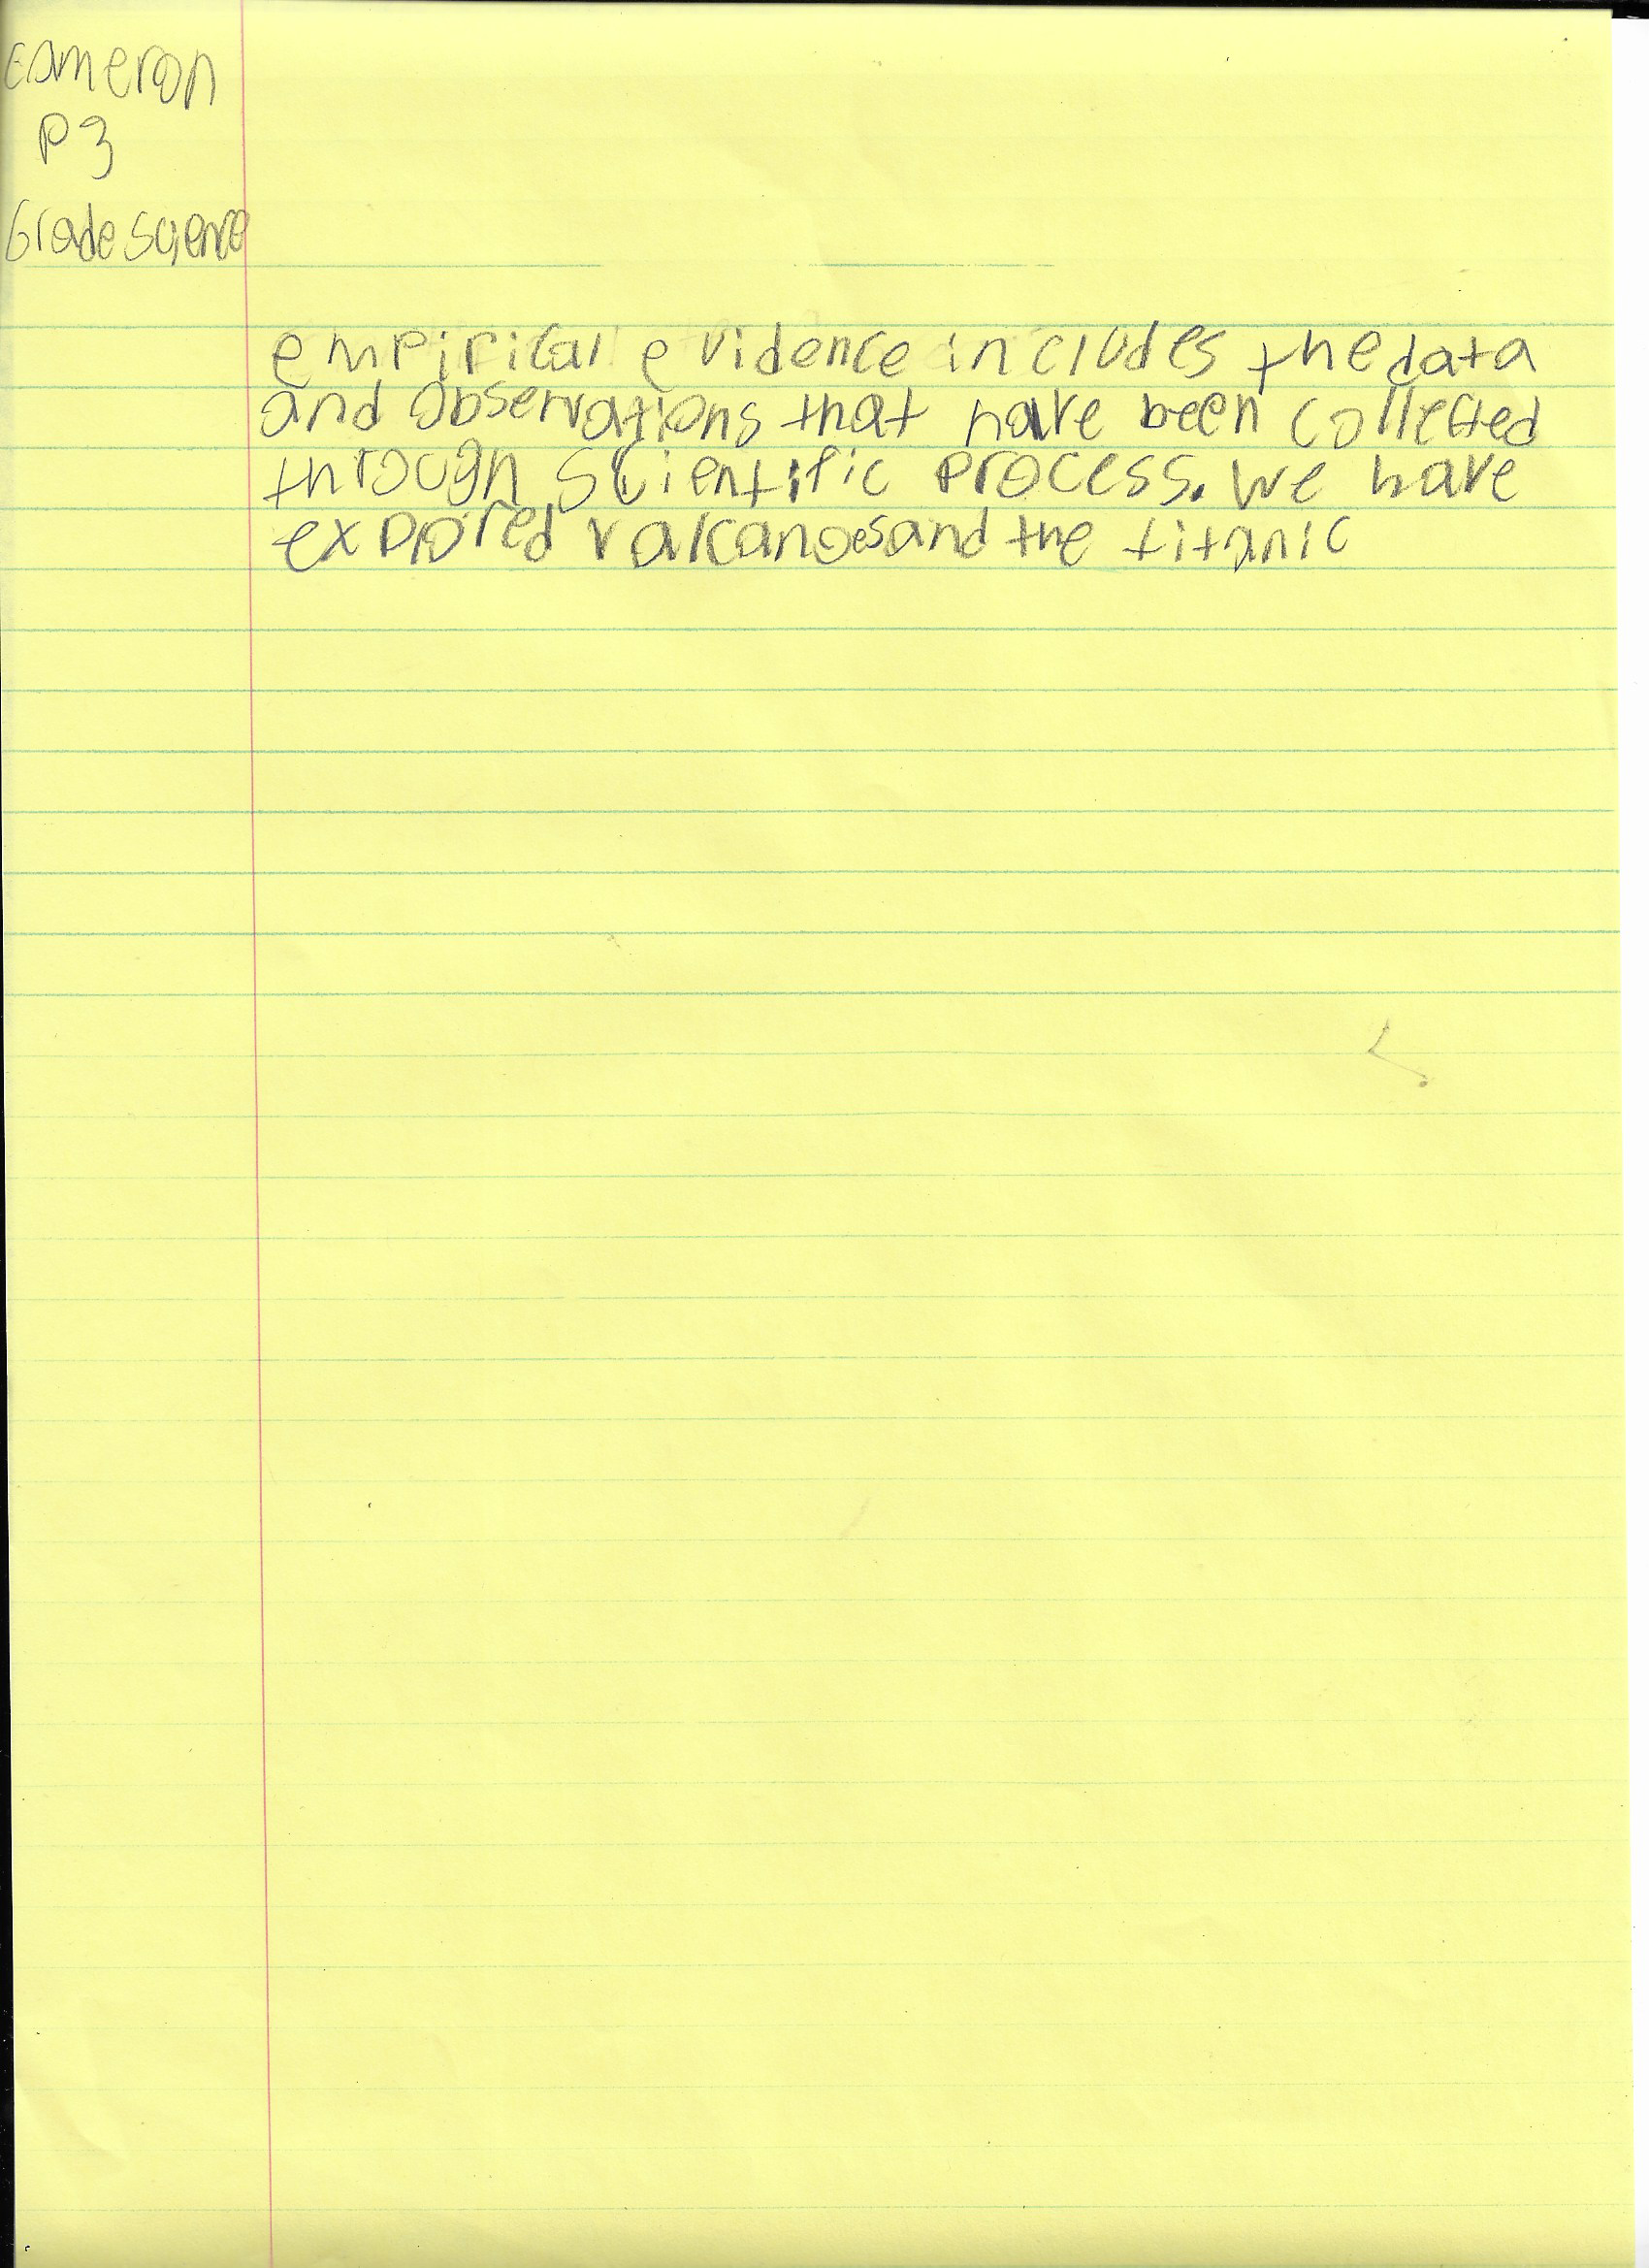 Cameron
P3
6rade science
empirical evidence includes the data
and observations that have been collected
through scientific process. we have
explored valcanoes and the titanic